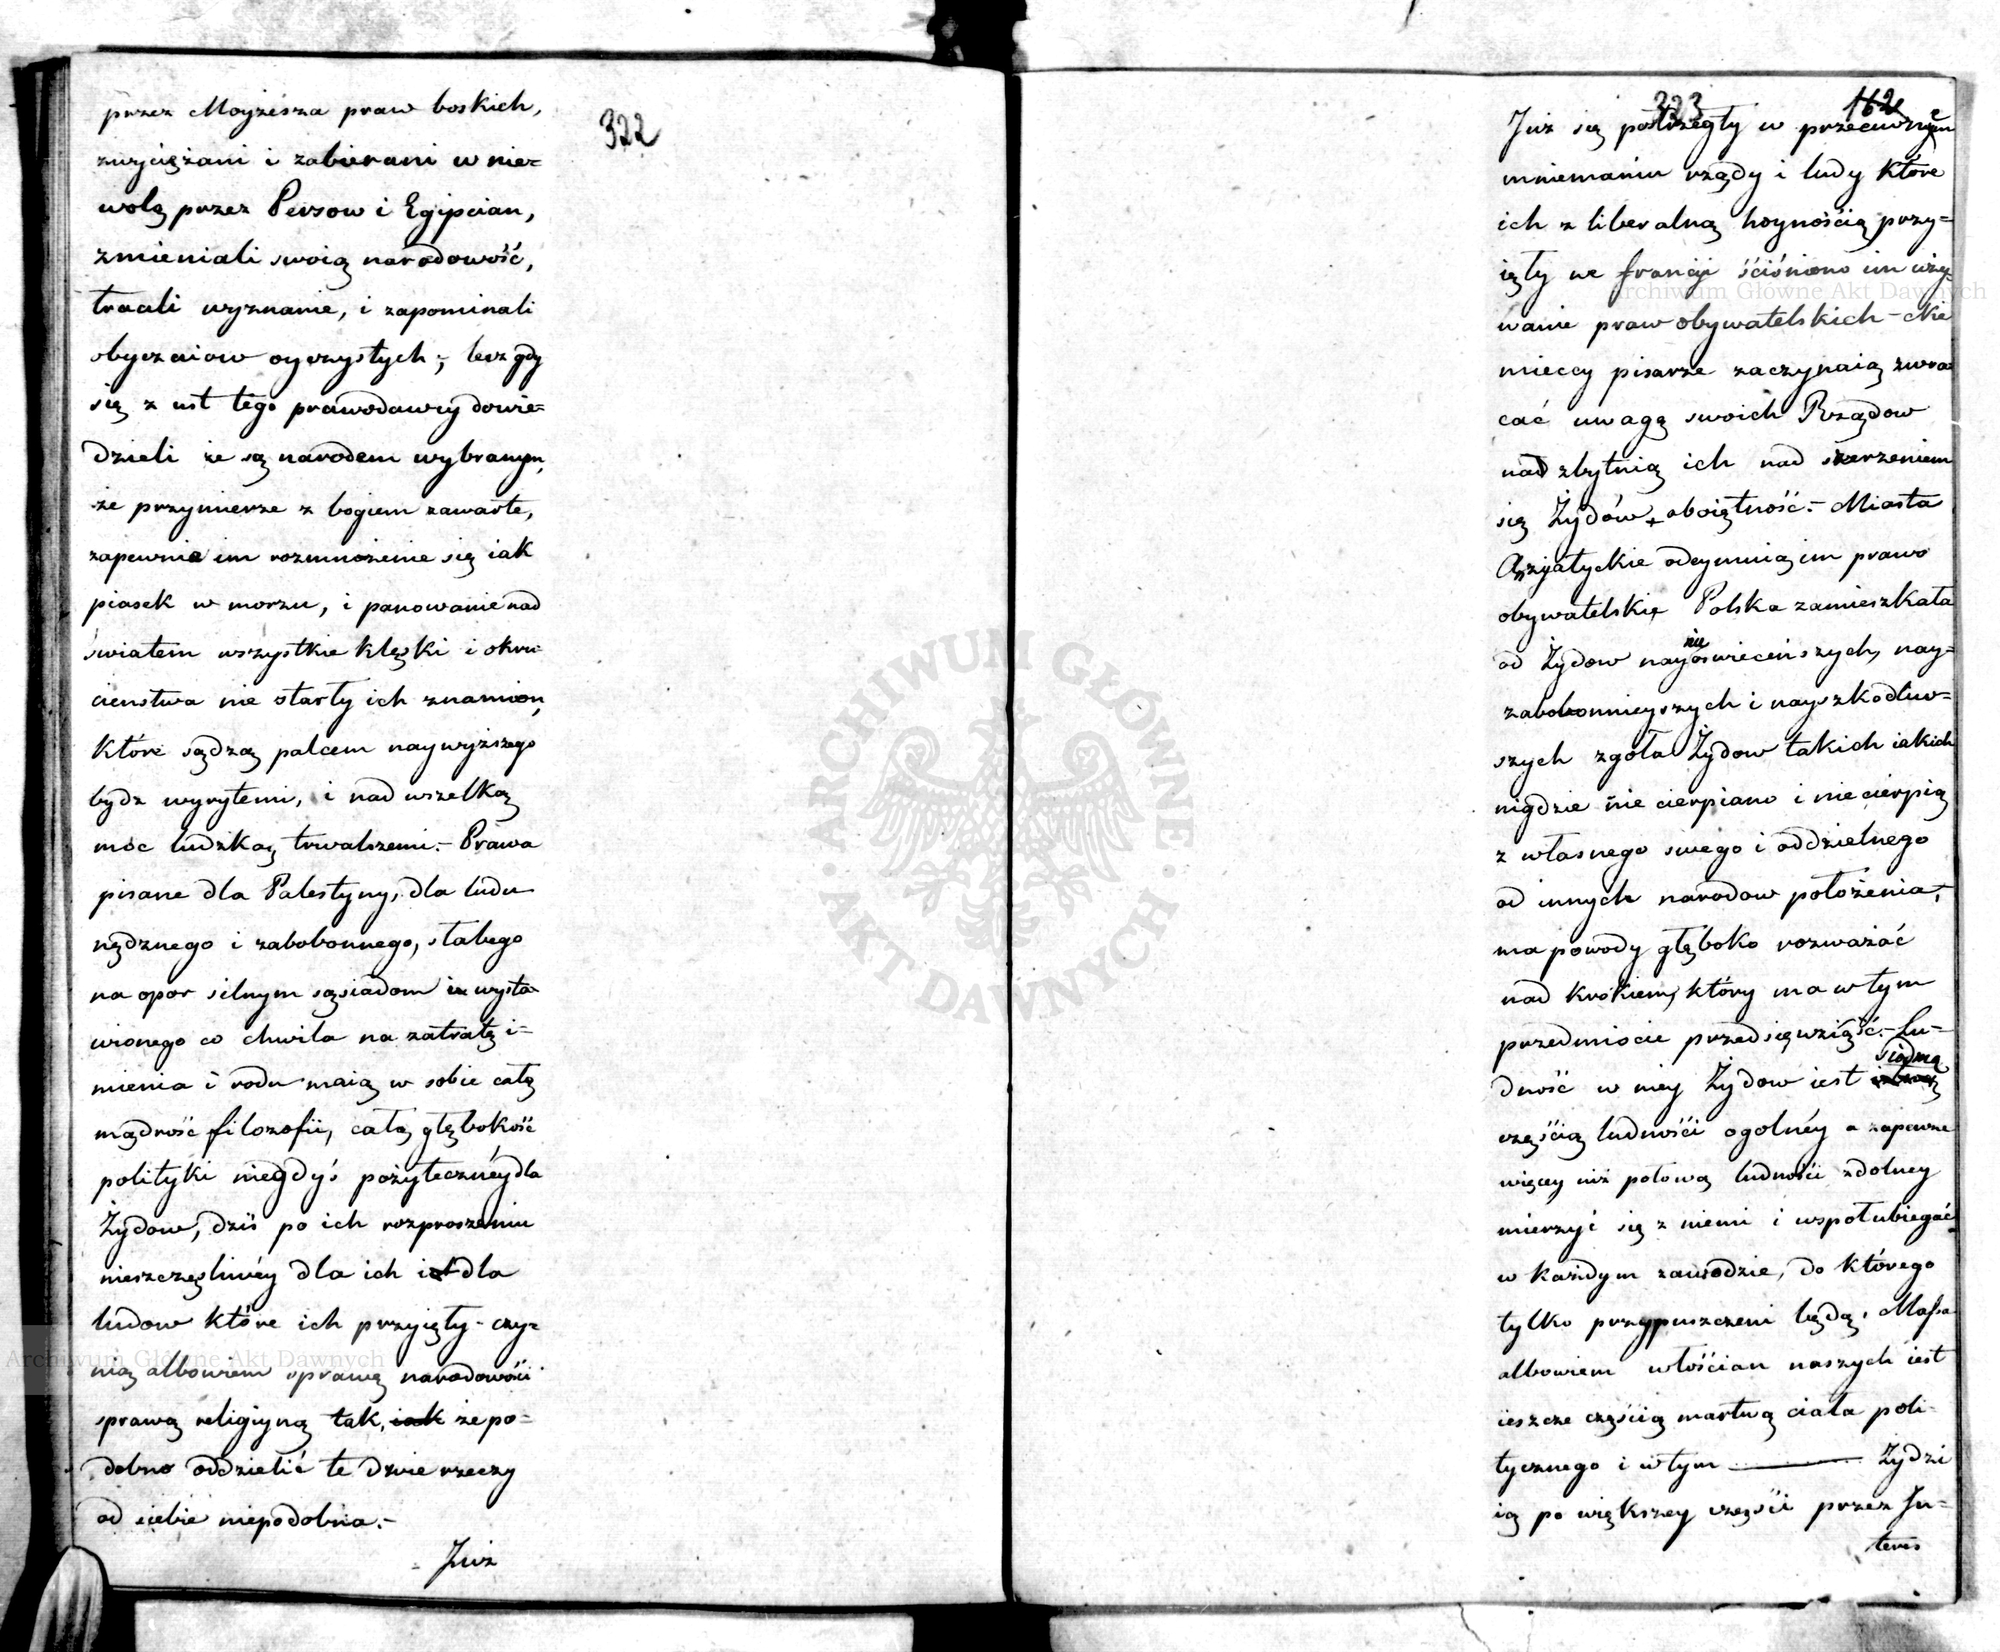 322
przez Moyżesza praw boskich,
zwyciężani i zabierani w nie=
wolą przez Persow i Egipcian,
zmieniali swoią narodowość,
tracili wyznanie, i zapominali
obyczaiow oyczystych; lecz gdy
się z ust tego prawodawcy dowie=
dzieli że są narodem wybranym,
że przymierze z bogiem zawarte,
zapewnia im rozmnożenie się iak
piasek w morzu, i panowanie nad
światem wszystkie klęski i okru-
cienstwa nie starły ich znamion,
które sądzą palcem naywyższego
bydz wyrytemi, i nad wszelką
moc ludzką trwalszemi.- Prawa
pisane dla Palestyny, dla ludu
nędznego i zabobonnego, słabego
na opor silnym sąsiadom wysta
wionego co chwila na zatratę i=
mienia i rodu maią w sobie całą
mądrość filozofii, całą głębokość
polityki niegdyś pożyteczney dla
Żydow, dziś po ich rozproszeniu
nieszczęśliwéy dla ich i dla
ludow które ich przyięły- czy=
nią albowiem sprawę narodowości
sprawą religiyną tak, iak że po=
dobno oddzielić te dwie rzeczy
od siebie niepodobna.-
Już
323 162
Już się postrzegły w przeciwném
mniemaniu rządy i ludy które
ich z liberalną hoynością przy=
ięły we francyi ściśniono im uży
wanie praw obywatelskich - Nie
mieccy pisarze zaczynaią zwra
cać uwagę swoich Rządow
nad zbytnią ich nad szerzeniem
się Żydów + oboiętność.- Miasta
Azyatyckie odeymuią im prawo
obywatelskie Polska zamieszkała
od Żydow naynieoświeceńszych, nay=
zabobonnieyszych i nayszkodliw=
szych zgoła Żydow takich iakich
nigdzie nie cierpiano i nie cierpią
z własnego swego i oddzielnego
od innych narodow położenia,
ma powody głęboko rozważać
nad krokiem, który ma w tym
przedmiocie przedsięwziąść.- Lu=
siodmą
dność w niey Żydow iest
częścią ludności ogolnéy a zapewne
więcey niż połową ludności zdolney
mierzyć się z niemi i wspołubiegać
w każdym zawodzie, do którego
tylko przypuszczeni będą. Massa
albowiem włościan naszych iest
ieszcze częścią martwą ciała poli-
tycznego i w tym ——— Żydzi
ią po większey części przez In=
teres
ARCHIWUM GŁÓWNE AKT DAWNYCH
Archiwum Główne Akt Dawnych
Archiwum Główne Akt Dawnych